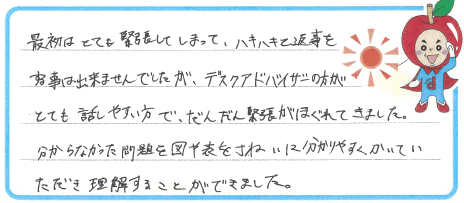 最初はとても緊張してしまって、ハキハキと返事を
する事は出来ませんでしたが、デスクアドバイザーの方が
とても話しやすい方で、だんだん緊張がほぐれてきました。
分からなかった問題を図や表をきれいに分かりやすくかいてい
ただき理解することができました。